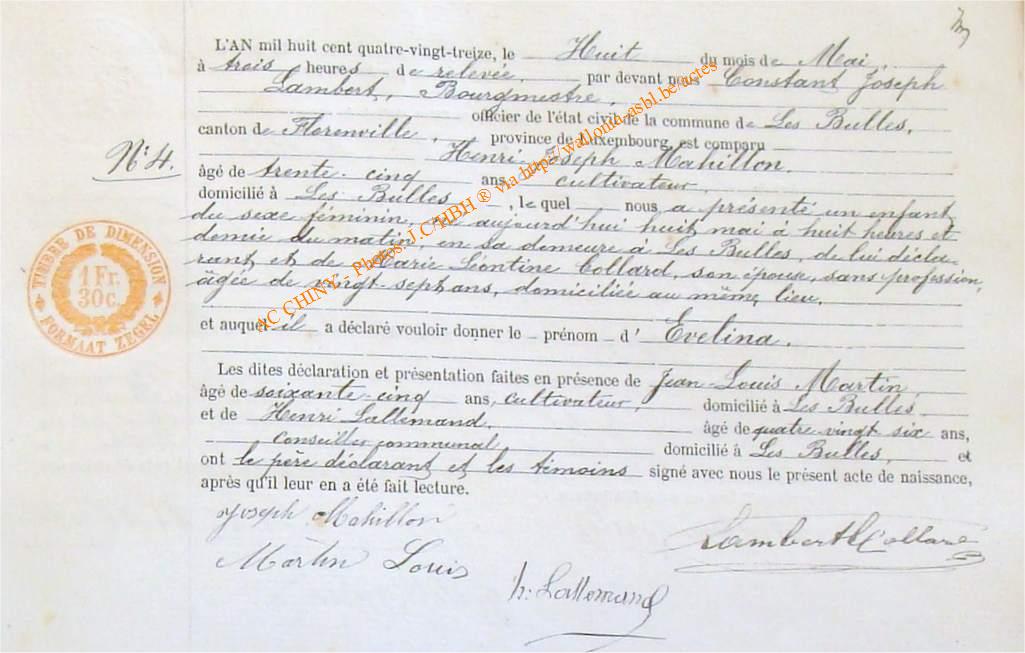 L'AN mil huit cent quatre-vingt-treize, le Huit du mois de Mai,
à trois heures de relevée, par devant nous Constant Joseph
Lambert, Bourgmestre,
officier de l'état civil de la commune de Les Bulles,
canton de Florenville, province de Luxembourg, est comparu
Henri-Joseph Mahillon,
N° 4.
âgé de trente-cinq ans, cultivateur,
domicilié à Les Bulles, le quel nous a présenté un enfant
du sexe féminin, né aujourd'hui huit mai à huit heures et
demie du matin, en sa demeure à Les Bulles, de lui décla-
rant et de Marie Léontine Collard, son épouse, sans profession,
âgée de vingt-sept ans, domiciliée au même lieu,
et auquel il a déclaré vouloir donner le prénom d' Evelina.
Les dites déclaration et présentation faites en présence de Jean-Louis Martin,
âgé de soixante-cinq ans, cultivateur, domicilié à Les Bulles
et de Henri Lallemand, âgé de quatre vingt six ans,
conseiller communal domicilié à Les Bulles, et
ont le père déclarant et les témoins signé avec nous le présent acte de naissance,
après qu'il leur en a été fait lecture.
Joseph Mahillon
Lambert Collard
Martin Louis
h. Lallemand
TIMBRE DE DIMENSION
1 Fr.
30 c.
FORMAAT ZEGEL
AC CHINY - Photos J.C/HBH ® via http//wallonia-asbl.be/actes